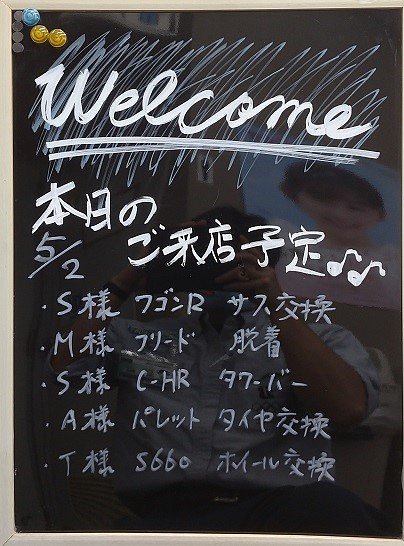 Welcome
本日の
5/2 ご来店予定♪♫
・S様 ワゴンR サス交換
・M様 フリード 脱着
・S様 C-HR タワーバー
・A様 パレット タイヤ交換
・T様 S660 ホイール交換